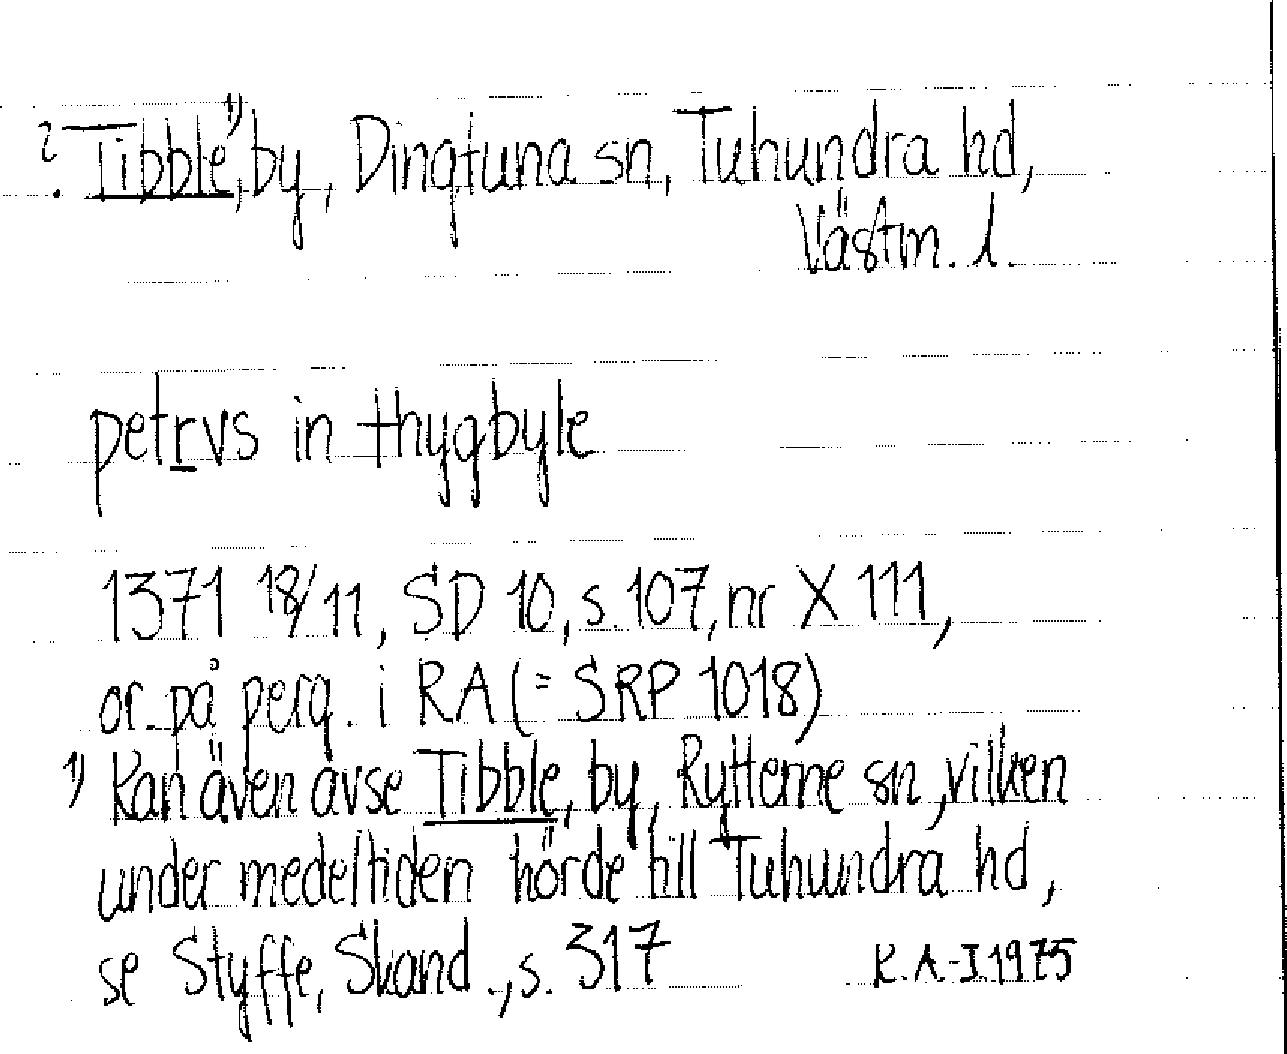 ? Tibble,¹⁾ by, Dingtuna sn, Tuhundra hd,
Västm. l.
petrvs in thygbyle
1371 18/11, SD 10, s. 107, nr X 111,
or. på perg. i RA (= SRP 1018)
¹⁾ Kan även avse Tibble, by, Rytterne sn, vilken
under medeltiden hörde till Tuhundra hd,
se Styffe, Skand., s. 317
K. A-I 1975